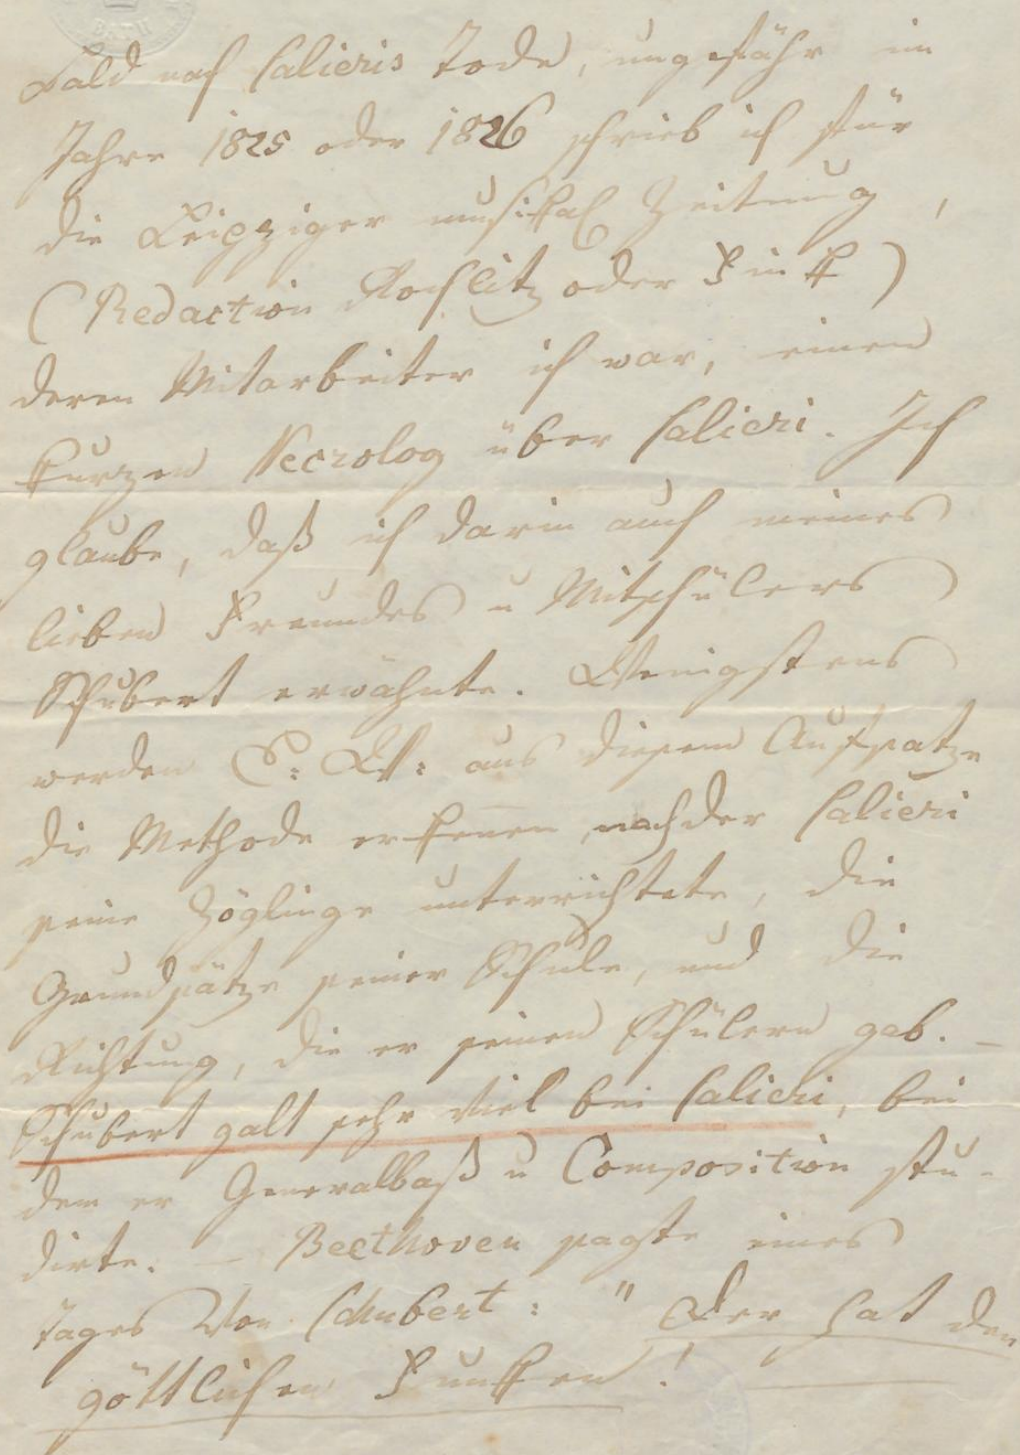 Bald nach Salieris Tode, ungefähr im
Jahre 1825 oder 1826 schrieb ich für
die Leipziger musikal Zeitung,
(Redaction Rochlitz oder Fink)
deren Mitarbeiter ich war, einen
kurzen Necrolog über Salieri. Ich
glaube, daß ich darin auch meines
lieben Freundes u Mitschülers
Schubert erwähnte. Wenigstens
werden E: W: aus diesem Aufsatze
die Methode erkennen, nach der Salieri
seine Zöglinge unterrichtete, die
Grundsätze seiner Schule, und die
Richtung, die er seinen Schülern gab. –
Schubert galt sehr viel bei Salieri, bei
dem er Generalbaß u Composition stu-
dirte. – Beethoven sagte eines
Tages von Schubert: "Der hat den
göttlichen Funken!